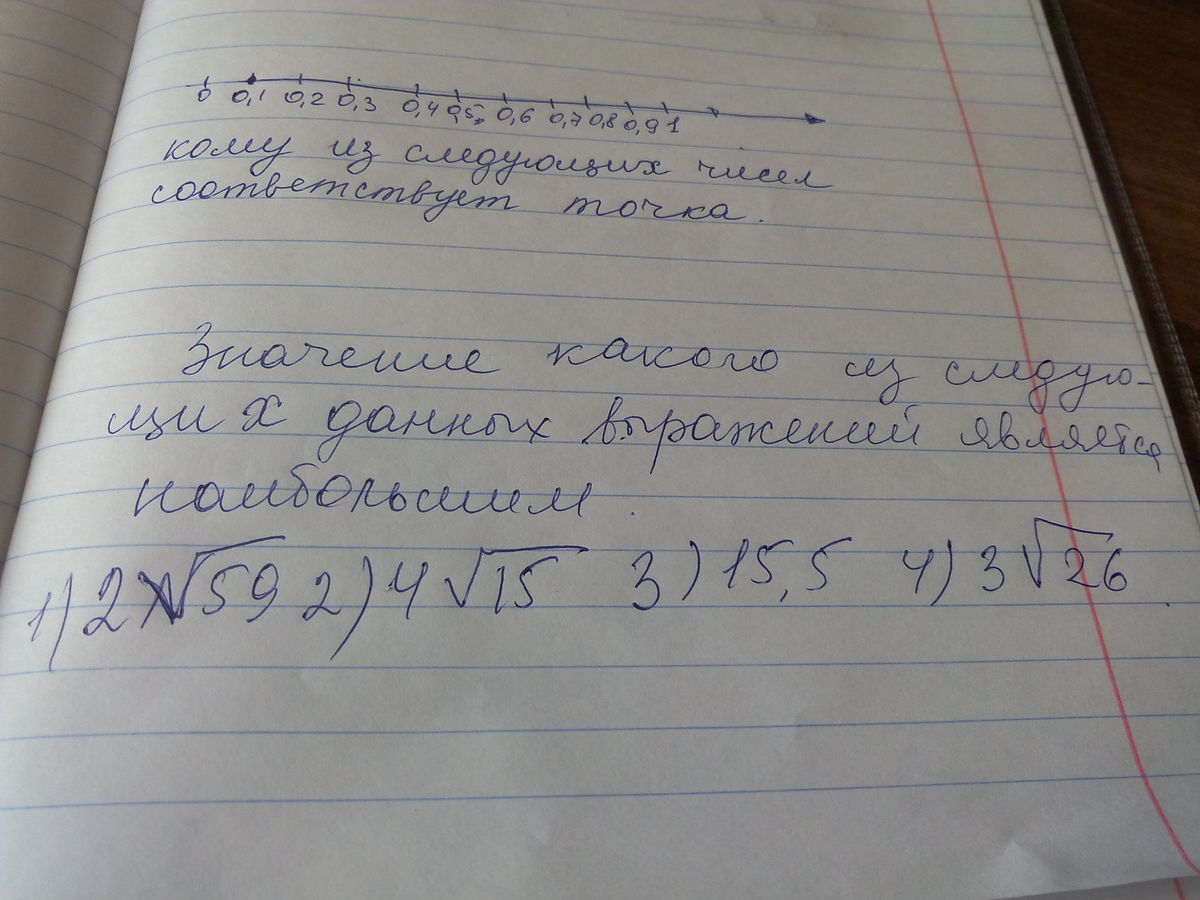 0 0,1 0,2 0,3 0,4 0,5 0,6 0,7 0,8 0,9 1
кому из следующих чисел
соответствует точка.
Значение какого из следую-
щих данных выражений является
наибольшим.
1) 2√59 2) 4√15 3) 15,5 4) 3√26.